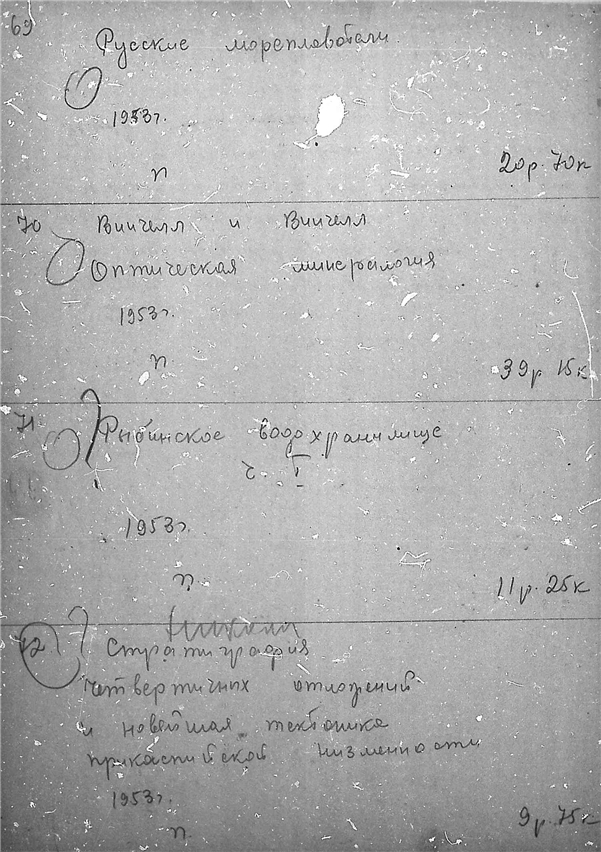 69
Русские мореплаватели
1953г.
п
20р. 70к
70 Винчелл и Винчелл
Оптическая минералогия
1953г.
п.
39р 15к
71 ? Рыбинское водохранилище
ч. I
1953г.
п.
11р. 25к
72 ? Стратиграфия
четвертичных отложений
и новейшая тектоника
прикаспийской низменности
1953г.
п.
9р. 75к